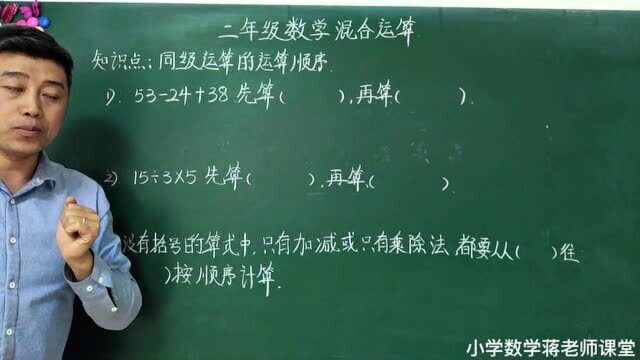 二年级数学混合运算
知识点：同级运算的运算顺序.
1). 53-24+38 先算(    ),再算(    ).
2) 15÷3×5 先算(    ),再算(    )
没有括号的算式中,只有加减或只有乘除法,都要从(  )往
)按顺序计算.
小学数学蒋老师课堂